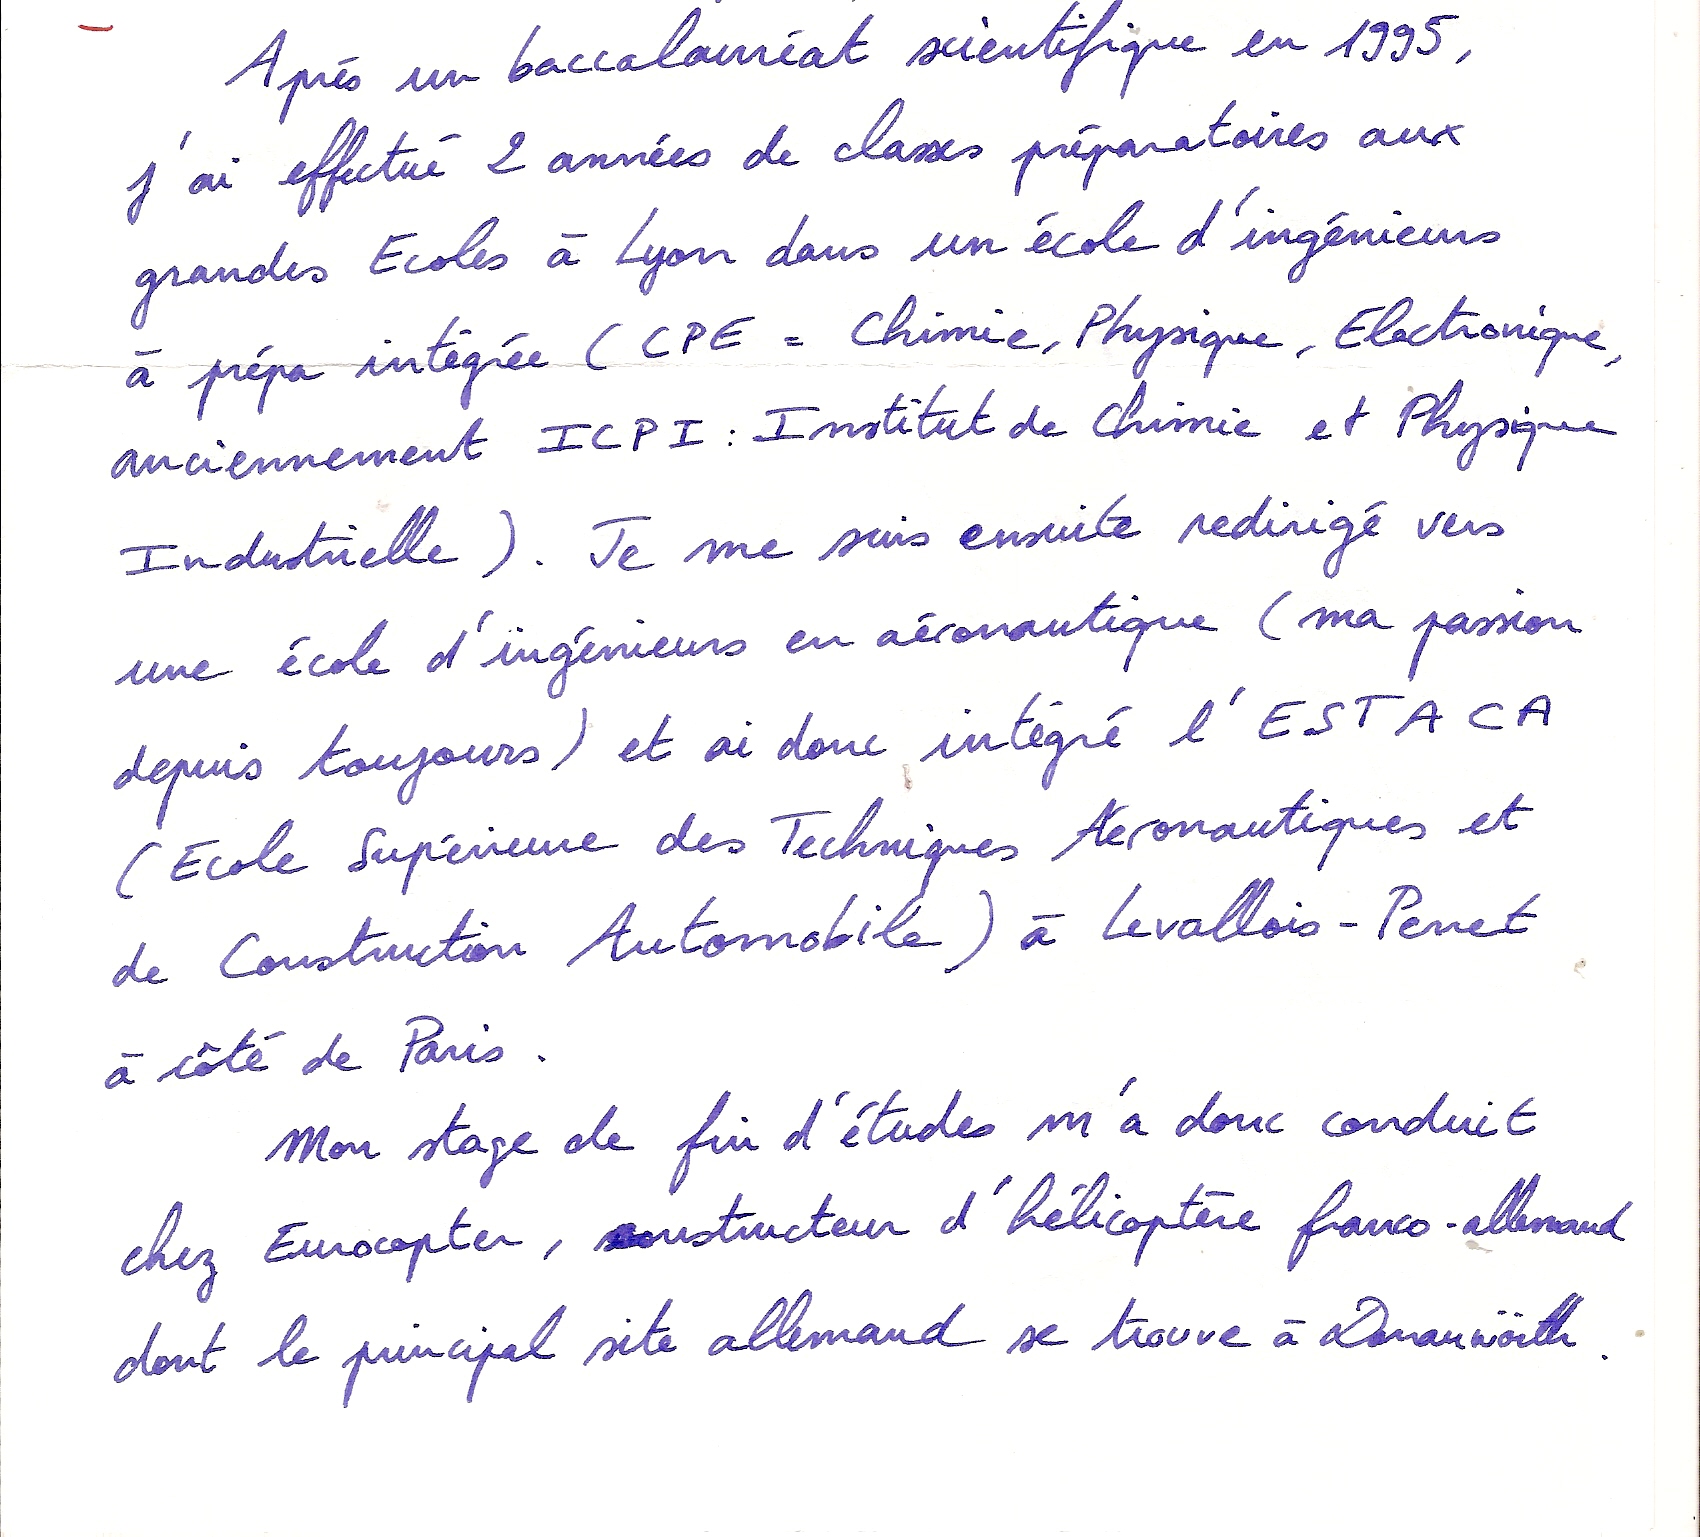 Après un baccalauréat scientifique en 1995,
j'ai effectué 2 années de classes préparatoires aux
grandes Ecoles à Lyon dans un école d'ingénieurs
à prépa intégrée (CPE = Chimie, Physique, Electronique,
anciennement ICPI : Institut de Chimie et Physique
Industrielle). Je me suis ensuite redirigé vers
une école d'ingénieurs en aéronautique (ma passion
depuis toujours) et ai donc intégré l'ESTACA
(Ecole Supérieure des Techniques Aéronautiques et
de Construction Automobile) à Levallois-Perret
à côté de Paris.
Mon stage de fin d'études m'a donc conduit
chez Eurocopter, constructeur d'hélicoptère franco-allemand
dont le principal site allemand se trouve à Donauwörth.